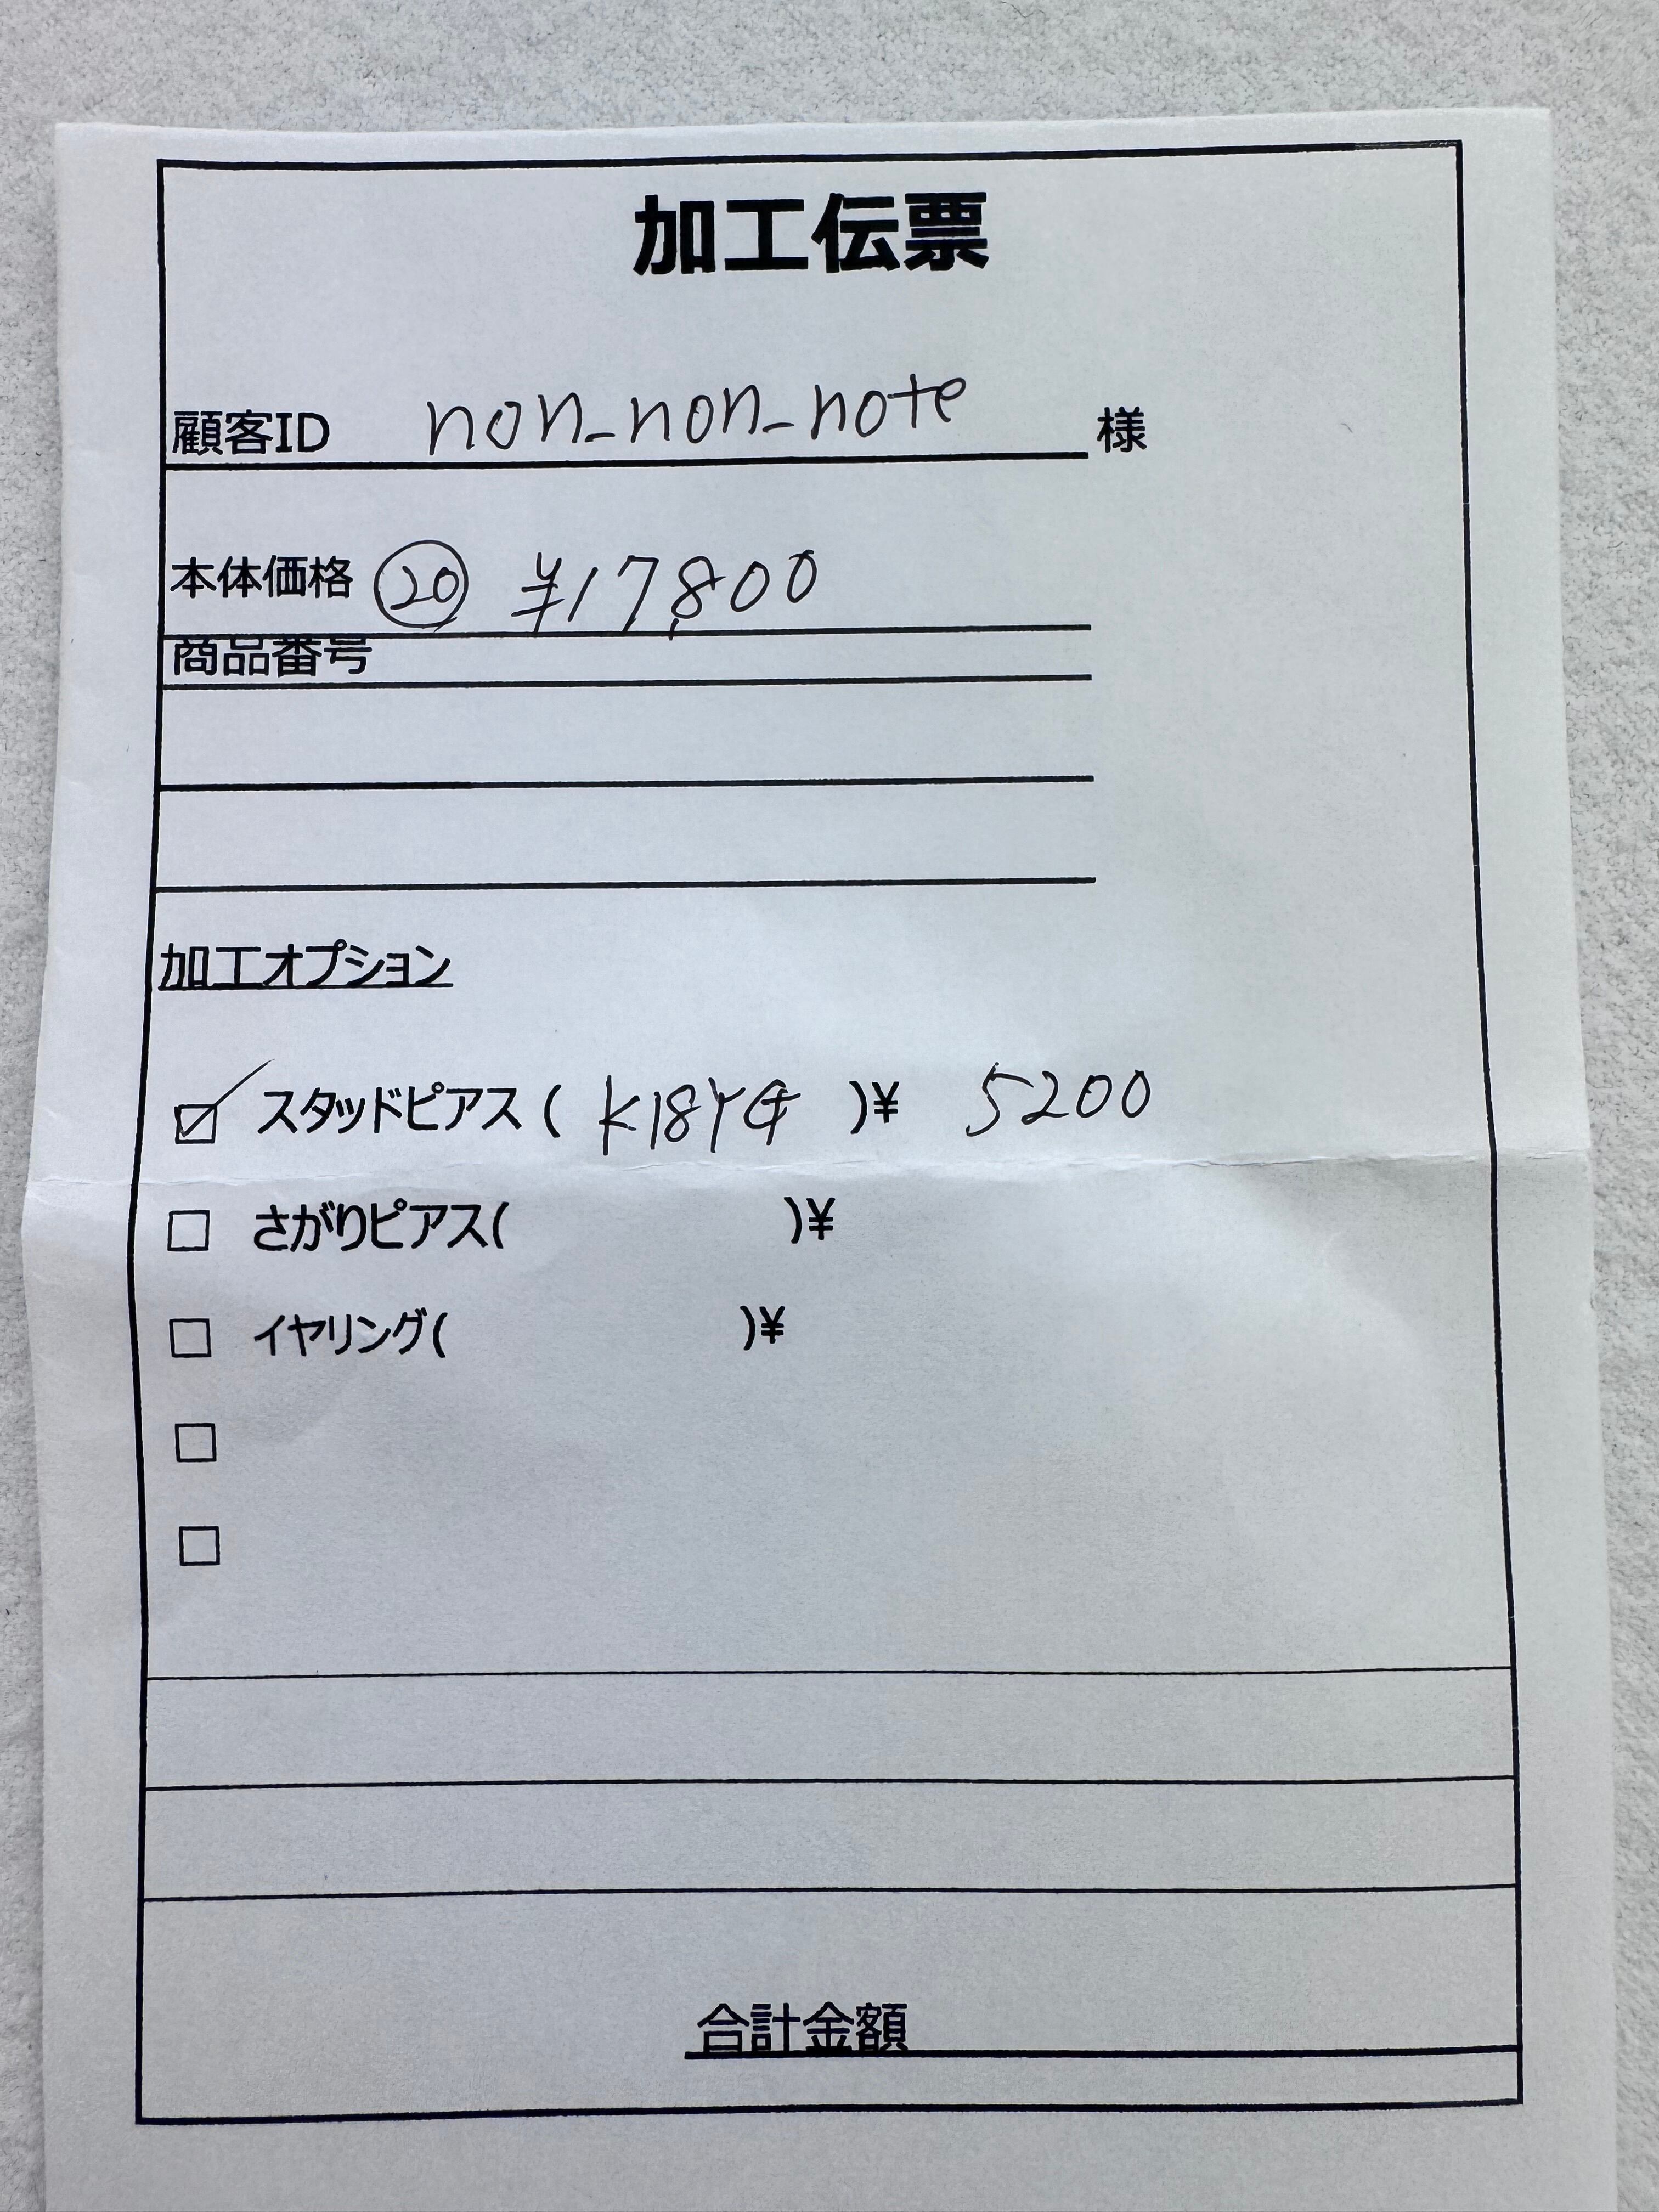 加工伝票
顧客ID non_non_note 様
本体価格 ⑳ ¥17,800
商品番号
加工オプション
☑ スタッドピアス( K18YG )¥ 5200
☐ さがりピアス( )¥
☐ イヤリング( )¥
☐
☐
合計金額